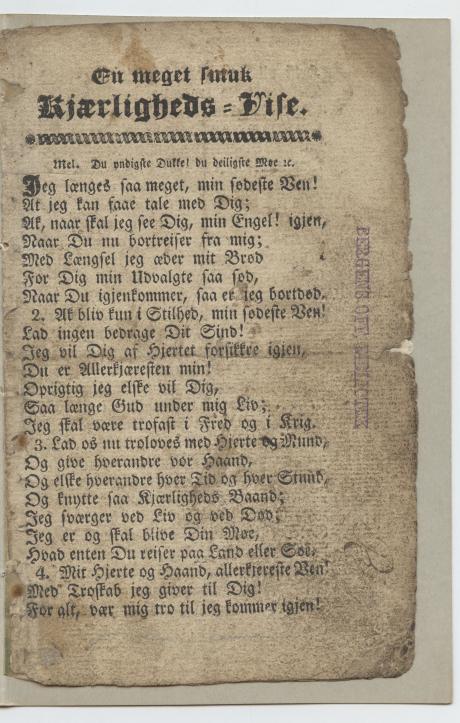 En meget smuk
Kjærligheds-Vise.
Mel. Du yndigste Dukke! du deiligste Møe ꝛc.
Jeg længes saa meget, min sødeste Ven!
At jeg kan faae tale med Dig;
Ak, naar skal jeg see Dig, min Engel! igjen,
Naar Du nu bortreiser fra mig;
Med Længsel jeg æder mit Brød
For Dig min Udvalgte saa sød,
Naar Du igjenkommer, saa er jeg bortdød.
2. Ak bliv kun i Stilhed, min sødeste Ven!
Lad ingen bedrage Dit Sind!
Jeg vil Dig af Hjertet forsikkre igjen,
Du er Allerkjæresten min!
Oprigtig jeg elske vil Dig,
Saa længe Gud under mig Liv;
Jeg skal være trofast i Fred og i Krig.
3. Lad os nu troloves med Hjerte og Mund,
Og give hverandre vor Haand,
Og elske hverandre hver Tid og hver Stund,
Og knytte saa Kjærligheds Baand;
Jeg sværger ved Liv og ved Død;
Jeg er og skal blive Din Møe,
Hvad enten Du reiser paa Land eller Søe.
4. Mit Hjerte og Haand, allerkjereste Ven!
Med Troskab jeg giver til Dig!
For alt, vær mig tro til jeg kommer igjen!
BERGENS OFF. BIBLIOTEK